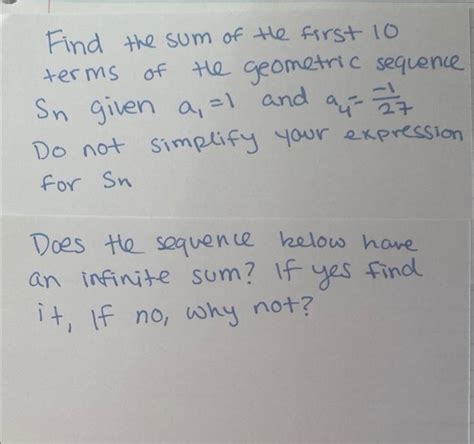 Find the sum of the first 10
terms of the geometric sequence
Sn given a₁=1 and a₄= -1/27
Do not simplify your expression
for Sn
Does the sequence below have
an infinite sum? If yes find
it, If no, why not?